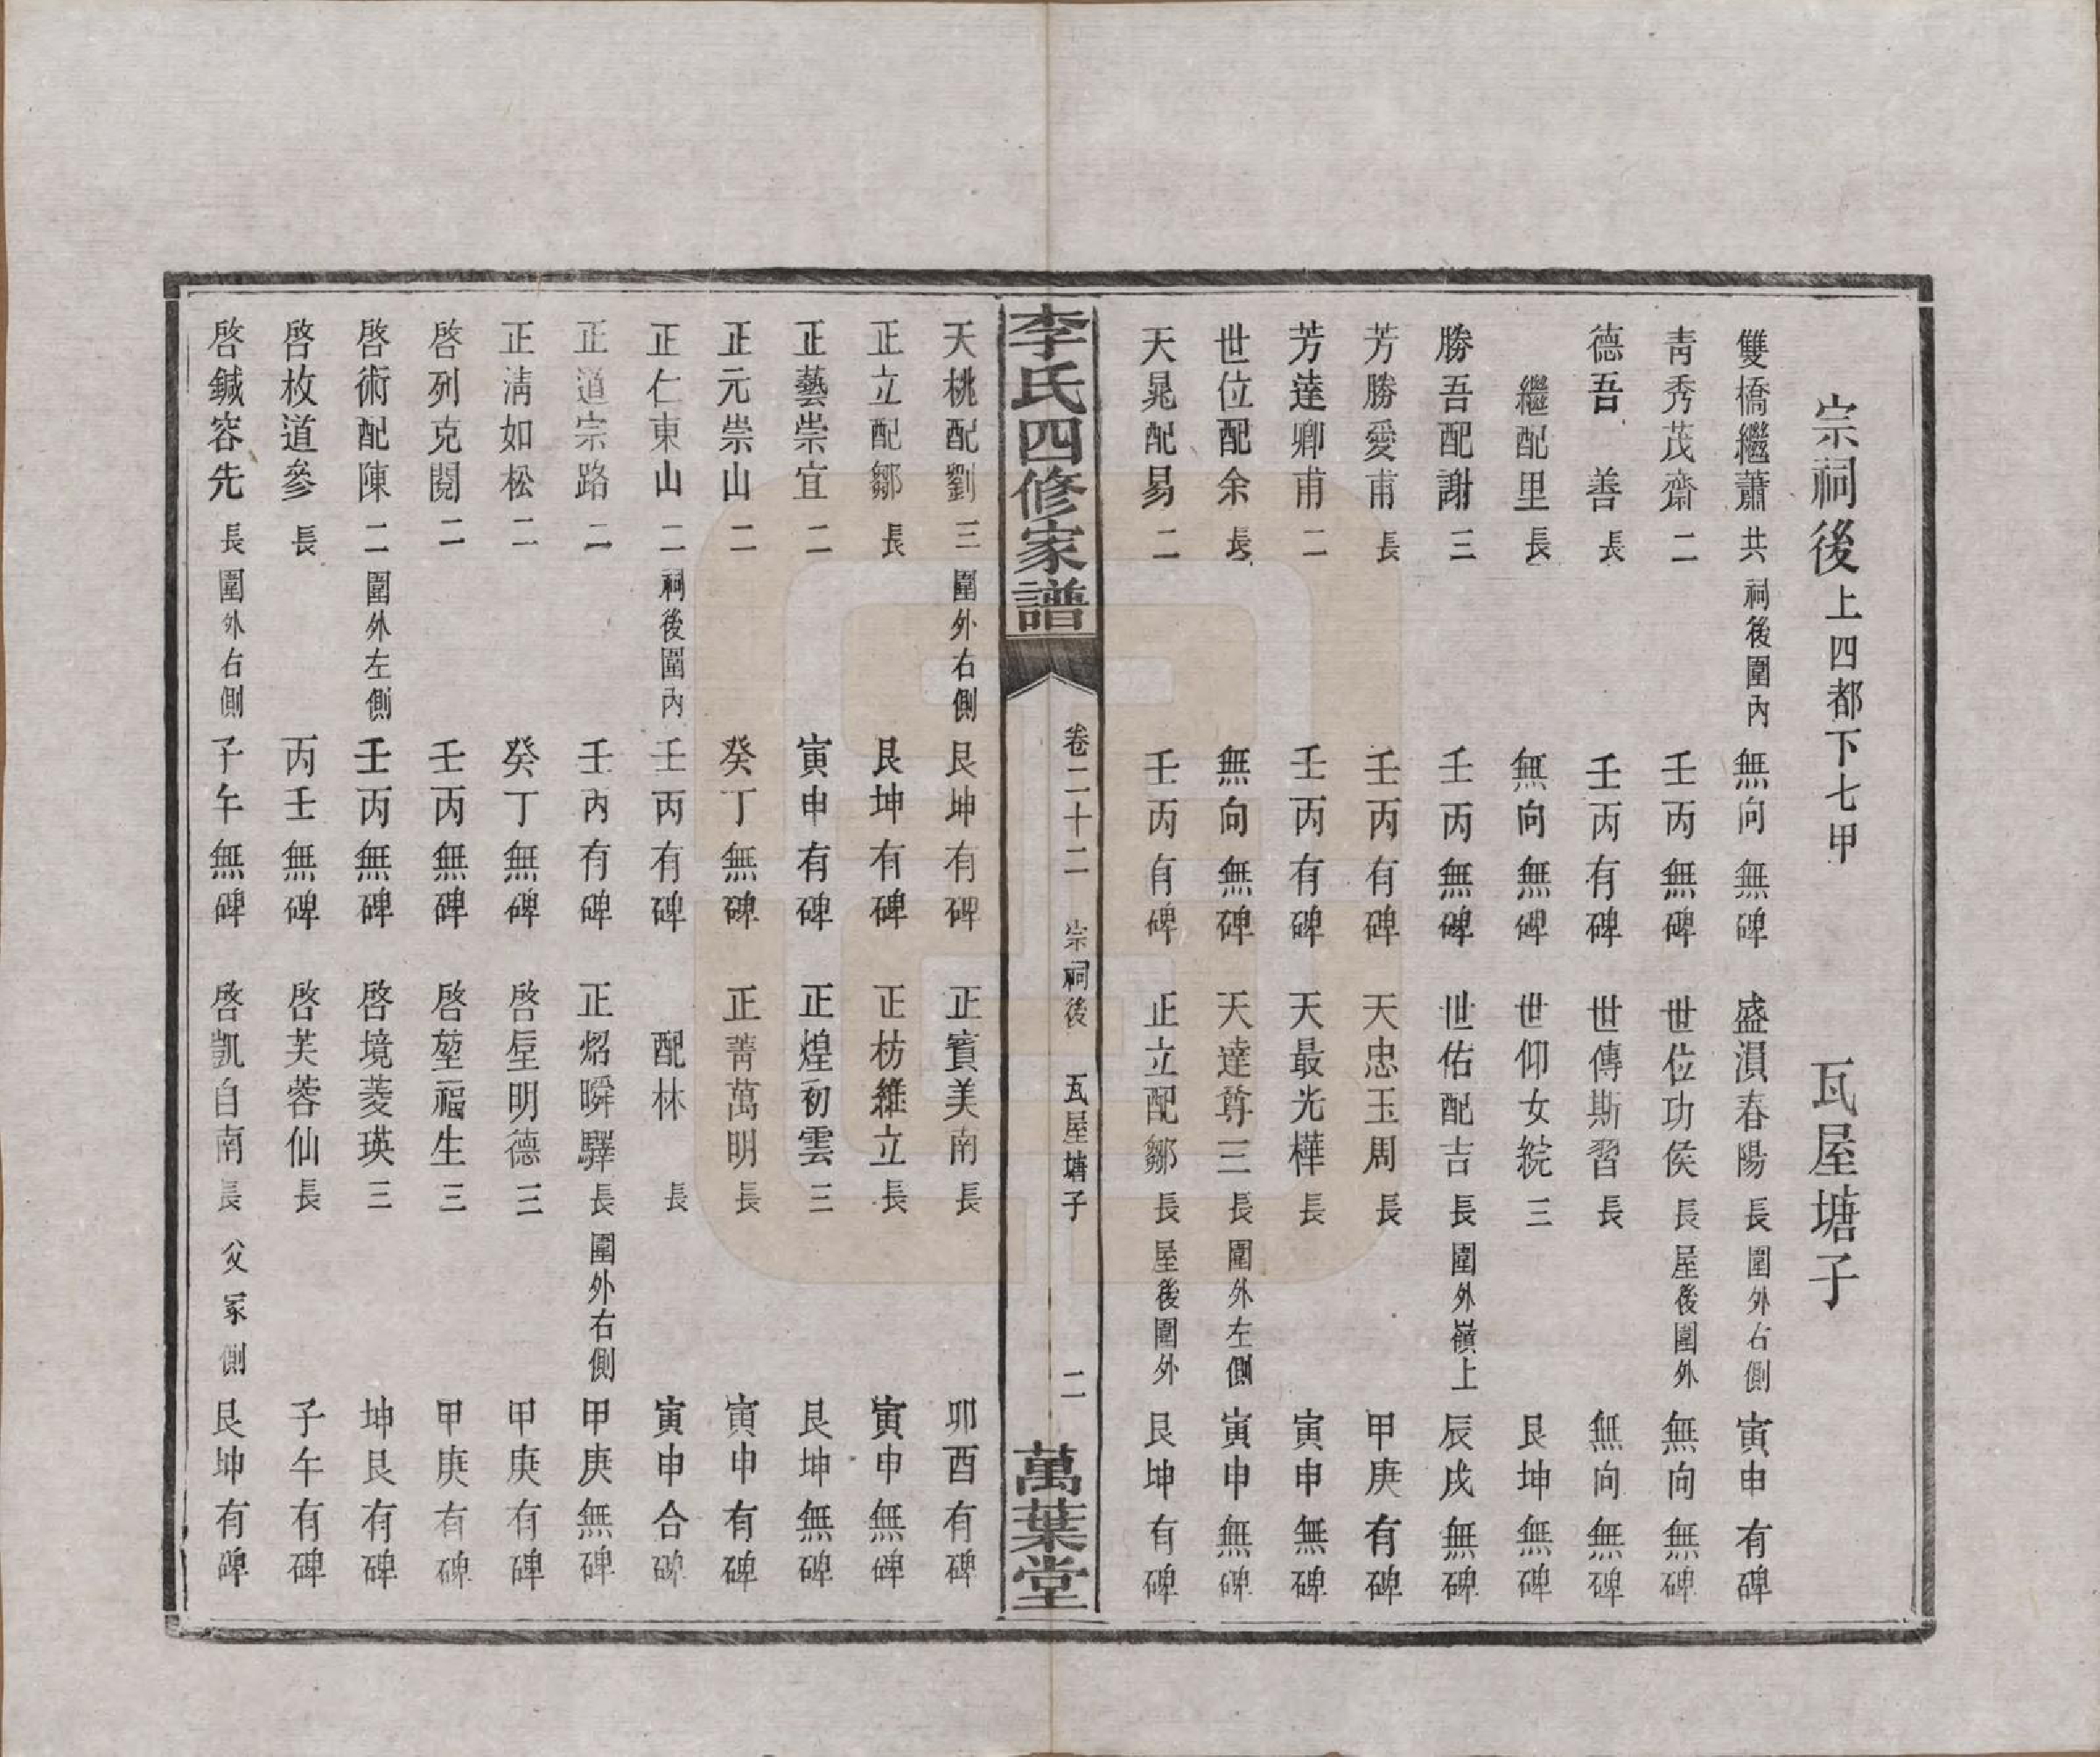 宗祠後上四都下七甲　瓦屋塘子
雙橋繼蕭共祠後圍內無向無碑　盛湏春陽長圍外右側寅申有碑
靑秀茂齋二壬丙無碑　世位功侯長屋後圍外無向無碑
德吾　善長壬丙有碑　世傳斯習長無向無碑
繼配里長無向無碑　世仰女綂三艮坤無碑
勝吾配謝三壬丙無碑　世佑配吉長圍外嶺上辰戌無碑
芳勝愛甫長壬丙有碑　天忠玉周長甲庚有碑
芳達卿甫二壬丙有碑　天最光樺長寅申無碑
世位配余長無向無碑　天達尊三長圍外左側寅申無碑
天晁配易二壬丙有碑　正立配鄒長屋後圍外艮坤有碑
李氏四修家譜　卷二十二　宗祠後　瓦屋塘子　二　萬葉堂
天桃配劉三圍外右側艮坤有碑　正賓美南長卯酉有碑
正立配鄒長艮坤有碑　正枋維立長寅申無碑
正藝崇宜二寅申有碑　正煌初雲三艮坤無碑
正元崇山二癸丁無碑　正菁萬明長寅申有碑
正仁東山二祠後圍內壬丙有碑　配林長寅申合碑
正道宗路二壬丙有碑　正炤瞬驛長圍外右側甲庚無碑
正淸如松二癸丁無碑　啓垕明德三甲庚有碑
啓列克閱二壬丙無碑　啓堃福生三甲庚有碑
啓術配陳二圍外左側壬丙無碑　啓境菱瑛三坤艮有碑
啓枚道參長丙壬無碑　啓芙蓉仙長子午有碑
啓鍼容先長圍外右側子午無碑　啓凱自南長父冢側艮坤有碑